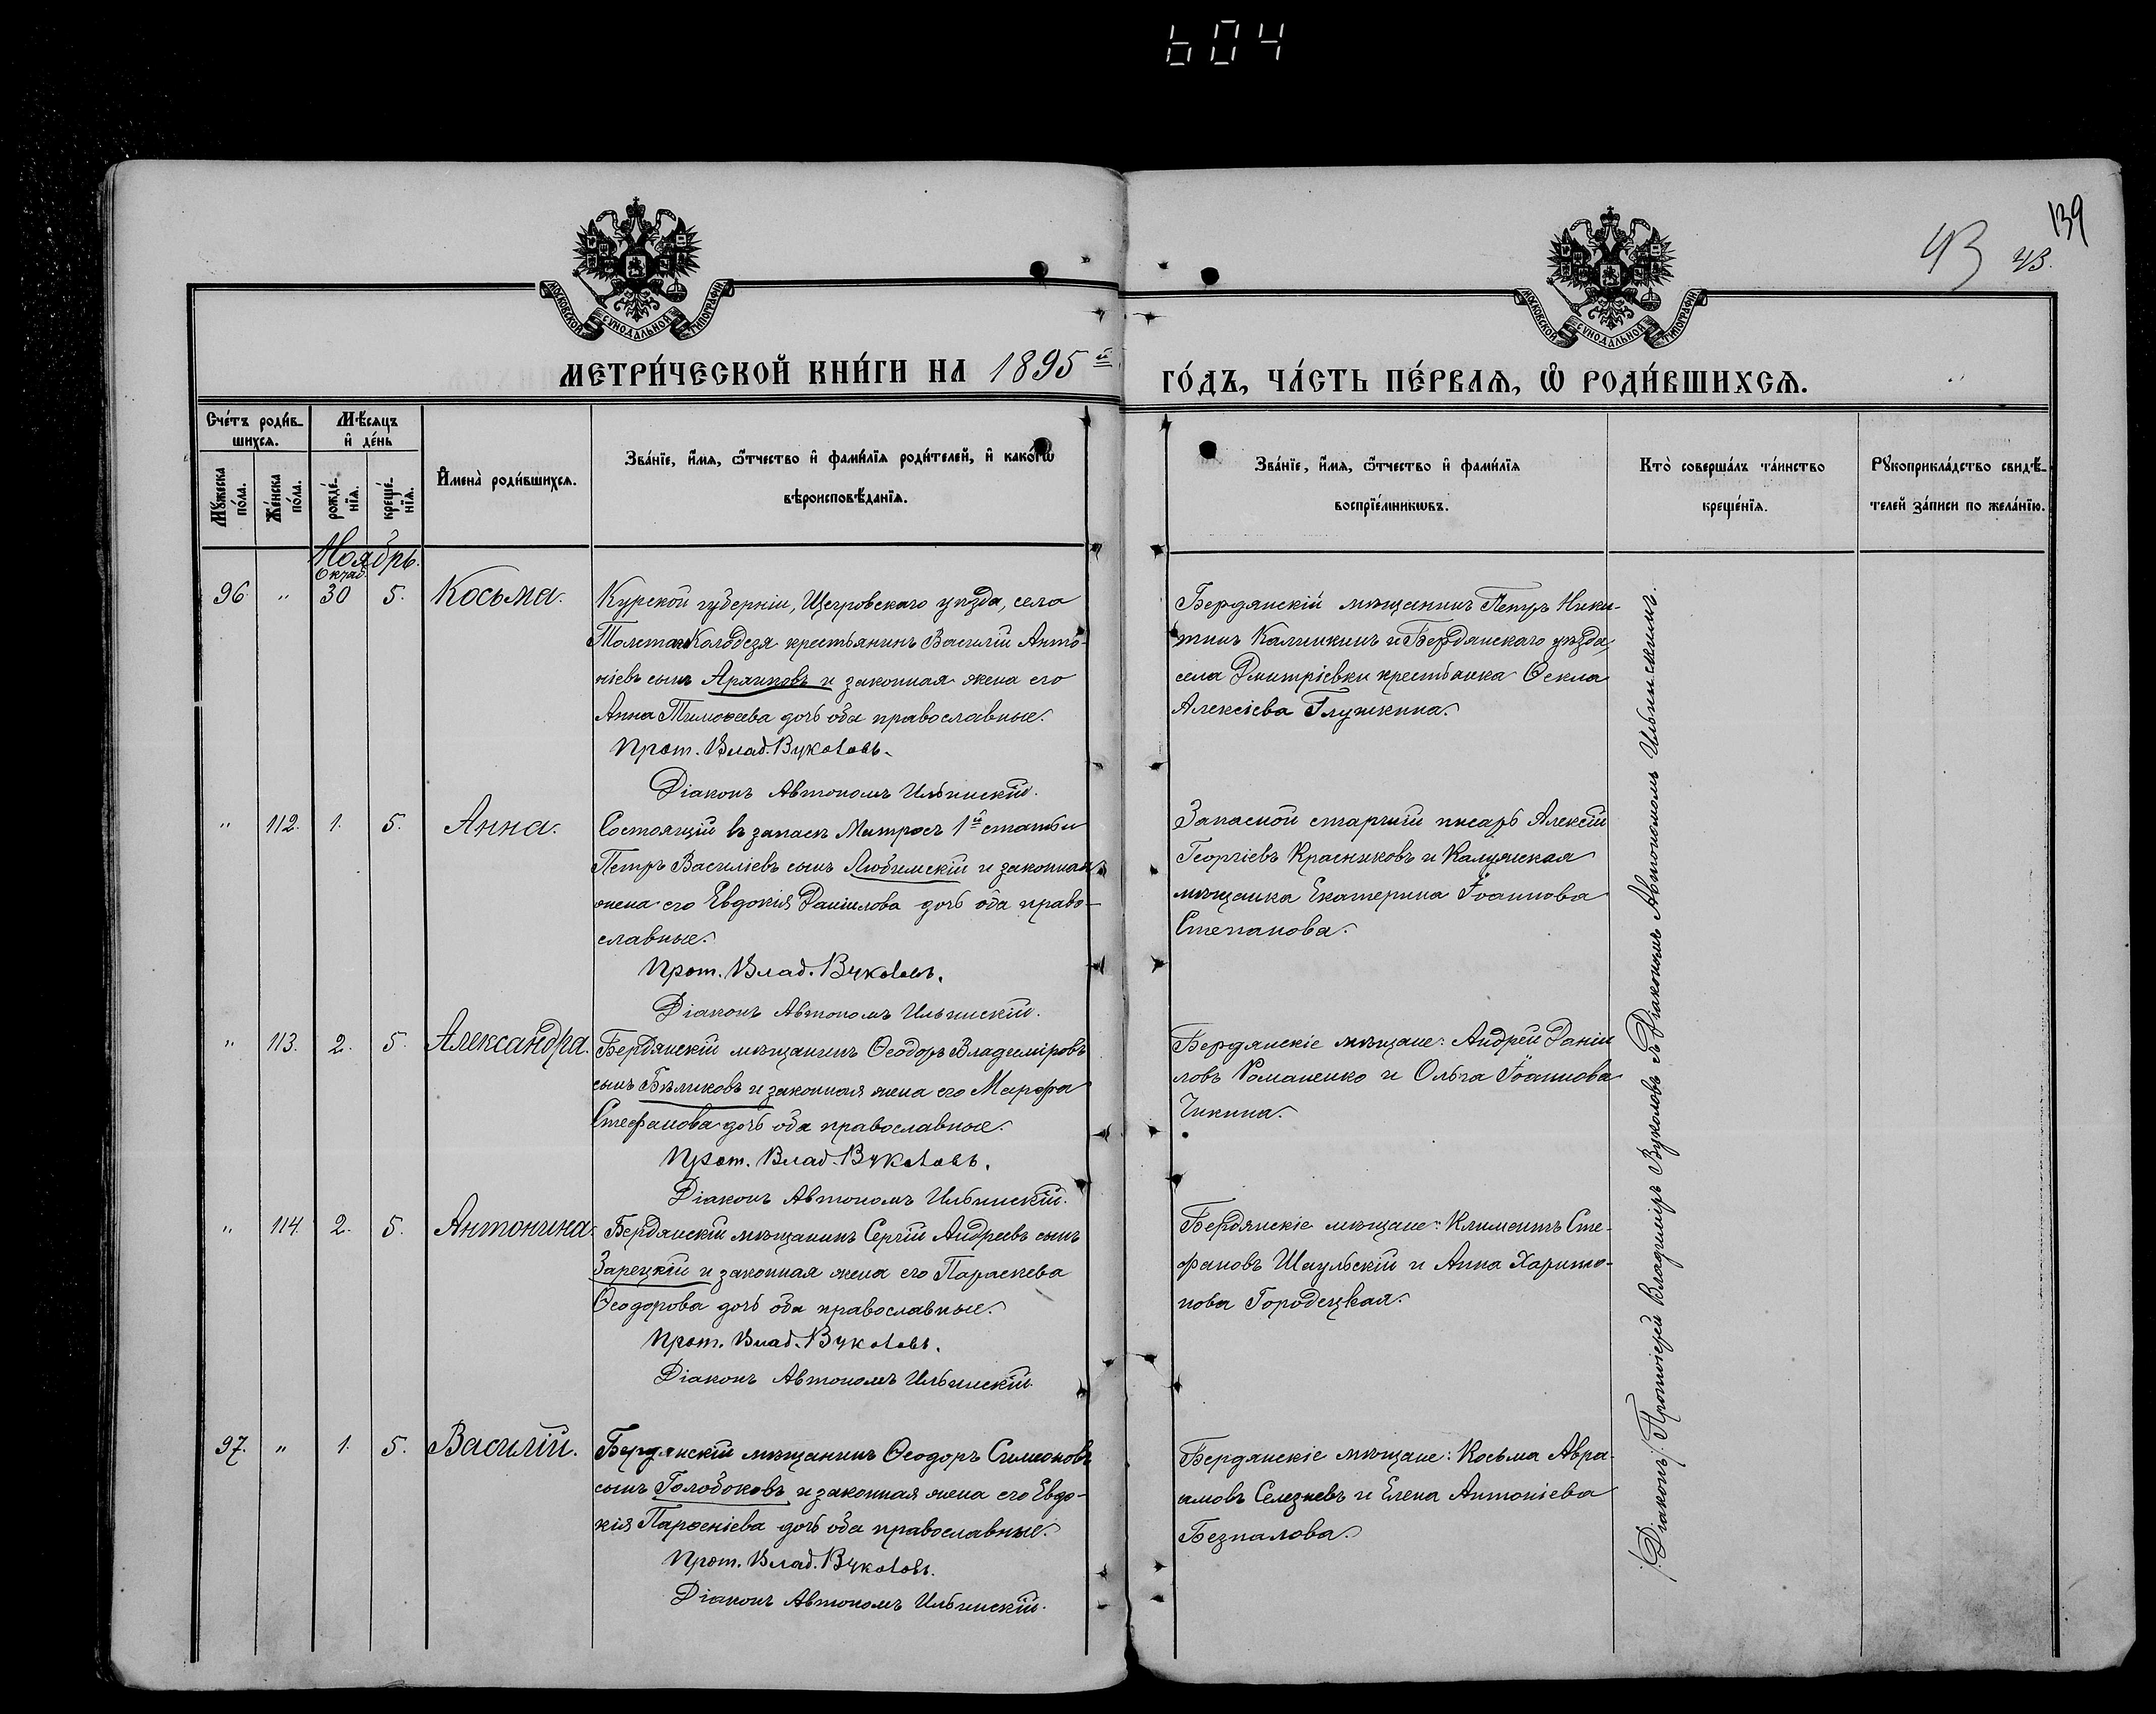 604
139
43 43.
МОСКОВСКОЙ СУНОДАЛЬНОЙ ТИПОГРАФІИ
МОСКОВСКОЙ СУНОДАЛЬНОЙ ТИПОГРАФІИ
МЕТРИ́ЧЕСКОЙ КНИ́ГИ НА 1895й ГО́ДЪ, ЧА́СТЬ ПЕ́РВАѦ, Ѡ РОДИ́ВШИХСѦ.
Сче́тъ роди́в-
шихсѧ.
Мѣ́сѧцъ
и҆ де́нь
Мꙋ́жеска
по́ла.
Же́нска
по́ла.
рожде́-
нїѧ.
креще́-
нїѧ.
И҆мена̀ роди́вшихсѧ.
Зва́нїе, и҆́мѧ, ѻ҆́тчество и҆ фами́лїѧ роди́телей, и҆ како́гѡ
вѣроисповѣ́данїѧ.
Зва́нїе, и҆́мѧ, ѻ҆́тчество и҆ фами́лїѧ
воспрїе́мникѡвъ.
Кто̀ соверша́лъ та́инство
креще́нїѧ.
Рꙋкоприкла́дство свидѣ́-
телей за́писи по жела́нїю.
Ноябрь.
Октяб.
96. " 30 5. Косьма.
Курской губерніи, Щегровскаго уѣзда, села
Толстаго Колодезя крестьянинъ Василій Анто-
ніевъ сынъ и законная жена его
Анна Тимоѳеева дочь оба православные.
Прот. Влад. Вуколовъ.
Діаконъ Автономъ Ильинскій.
Бердянскій мѣщанинъ Петръ Ники-
тинъ Калинкинъ и Бердянскаго уѣзда,
села Дмитріевки крестьянка Ѳекла
Алексіева Глушкина.
" 112. 1. 5. Анна.
Состоящій въ запасѣ Матросъ 1й статьи
Петръ Василіевъ сынъ Любимскій и законная
жена его Евдокія Даніилова дочь оба право-
славные.
Прот. Влад. Вуколовъ.
Діаконъ Автономъ Ильинскій.
Запасной старшій писарь Алексій
Георгіевъ Красниковъ и Калужская
мѣщанка Екатерина Іоаннова
Степанова.
" 113. 2. 5. Александра.
Бердянскій мѣщанинъ Ѳеодоръ Владиміровъ
сынъ Бѣликовъ и законная жена его Марфа
Стефанова дочь оба православные.
Прот. Влад. Вуколовъ.
Діаконъ Автономъ Ильинскій.
Бердянскіе мѣщане: Андрей Даніи
ловъ Романенко и Ольга Іоаннова
Чикина.
" 114. 2. 5. Антонина.
Бердянскій мѣщанинъ Сергій Андреевъ сынъ
Зарецкій и законная жена его Параскева
Ѳеодорова дочь оба православные.
Прот. Влад. Вуколовъ.
Діаконъ Автономъ Ильинскій.
Бердянскіе мѣщане: Климентъ Сте-
фановъ Шаульскій и Анна Харито-
нова Городецкая.
97. " 1. 5. Василій.
Бердянскій мѣщанинъ Ѳеодоръ Симеоновъ
сынъ Голобоковъ и законная жена его Евдо-
кія Парѳеніева дочь оба православные.
Прот. Влад. Вуколовъ.
Діаконъ Автономъ Ильинскій.
Бердянскіе мѣщане: Косьма Авра-
амовъ Селезневъ и Елена Антоніева
Безпалова.
/:Діаконъ:/ Протоіерей Владиміръ Вуколовъ съ Діакономъ Автономомъ Ильинскимъ.